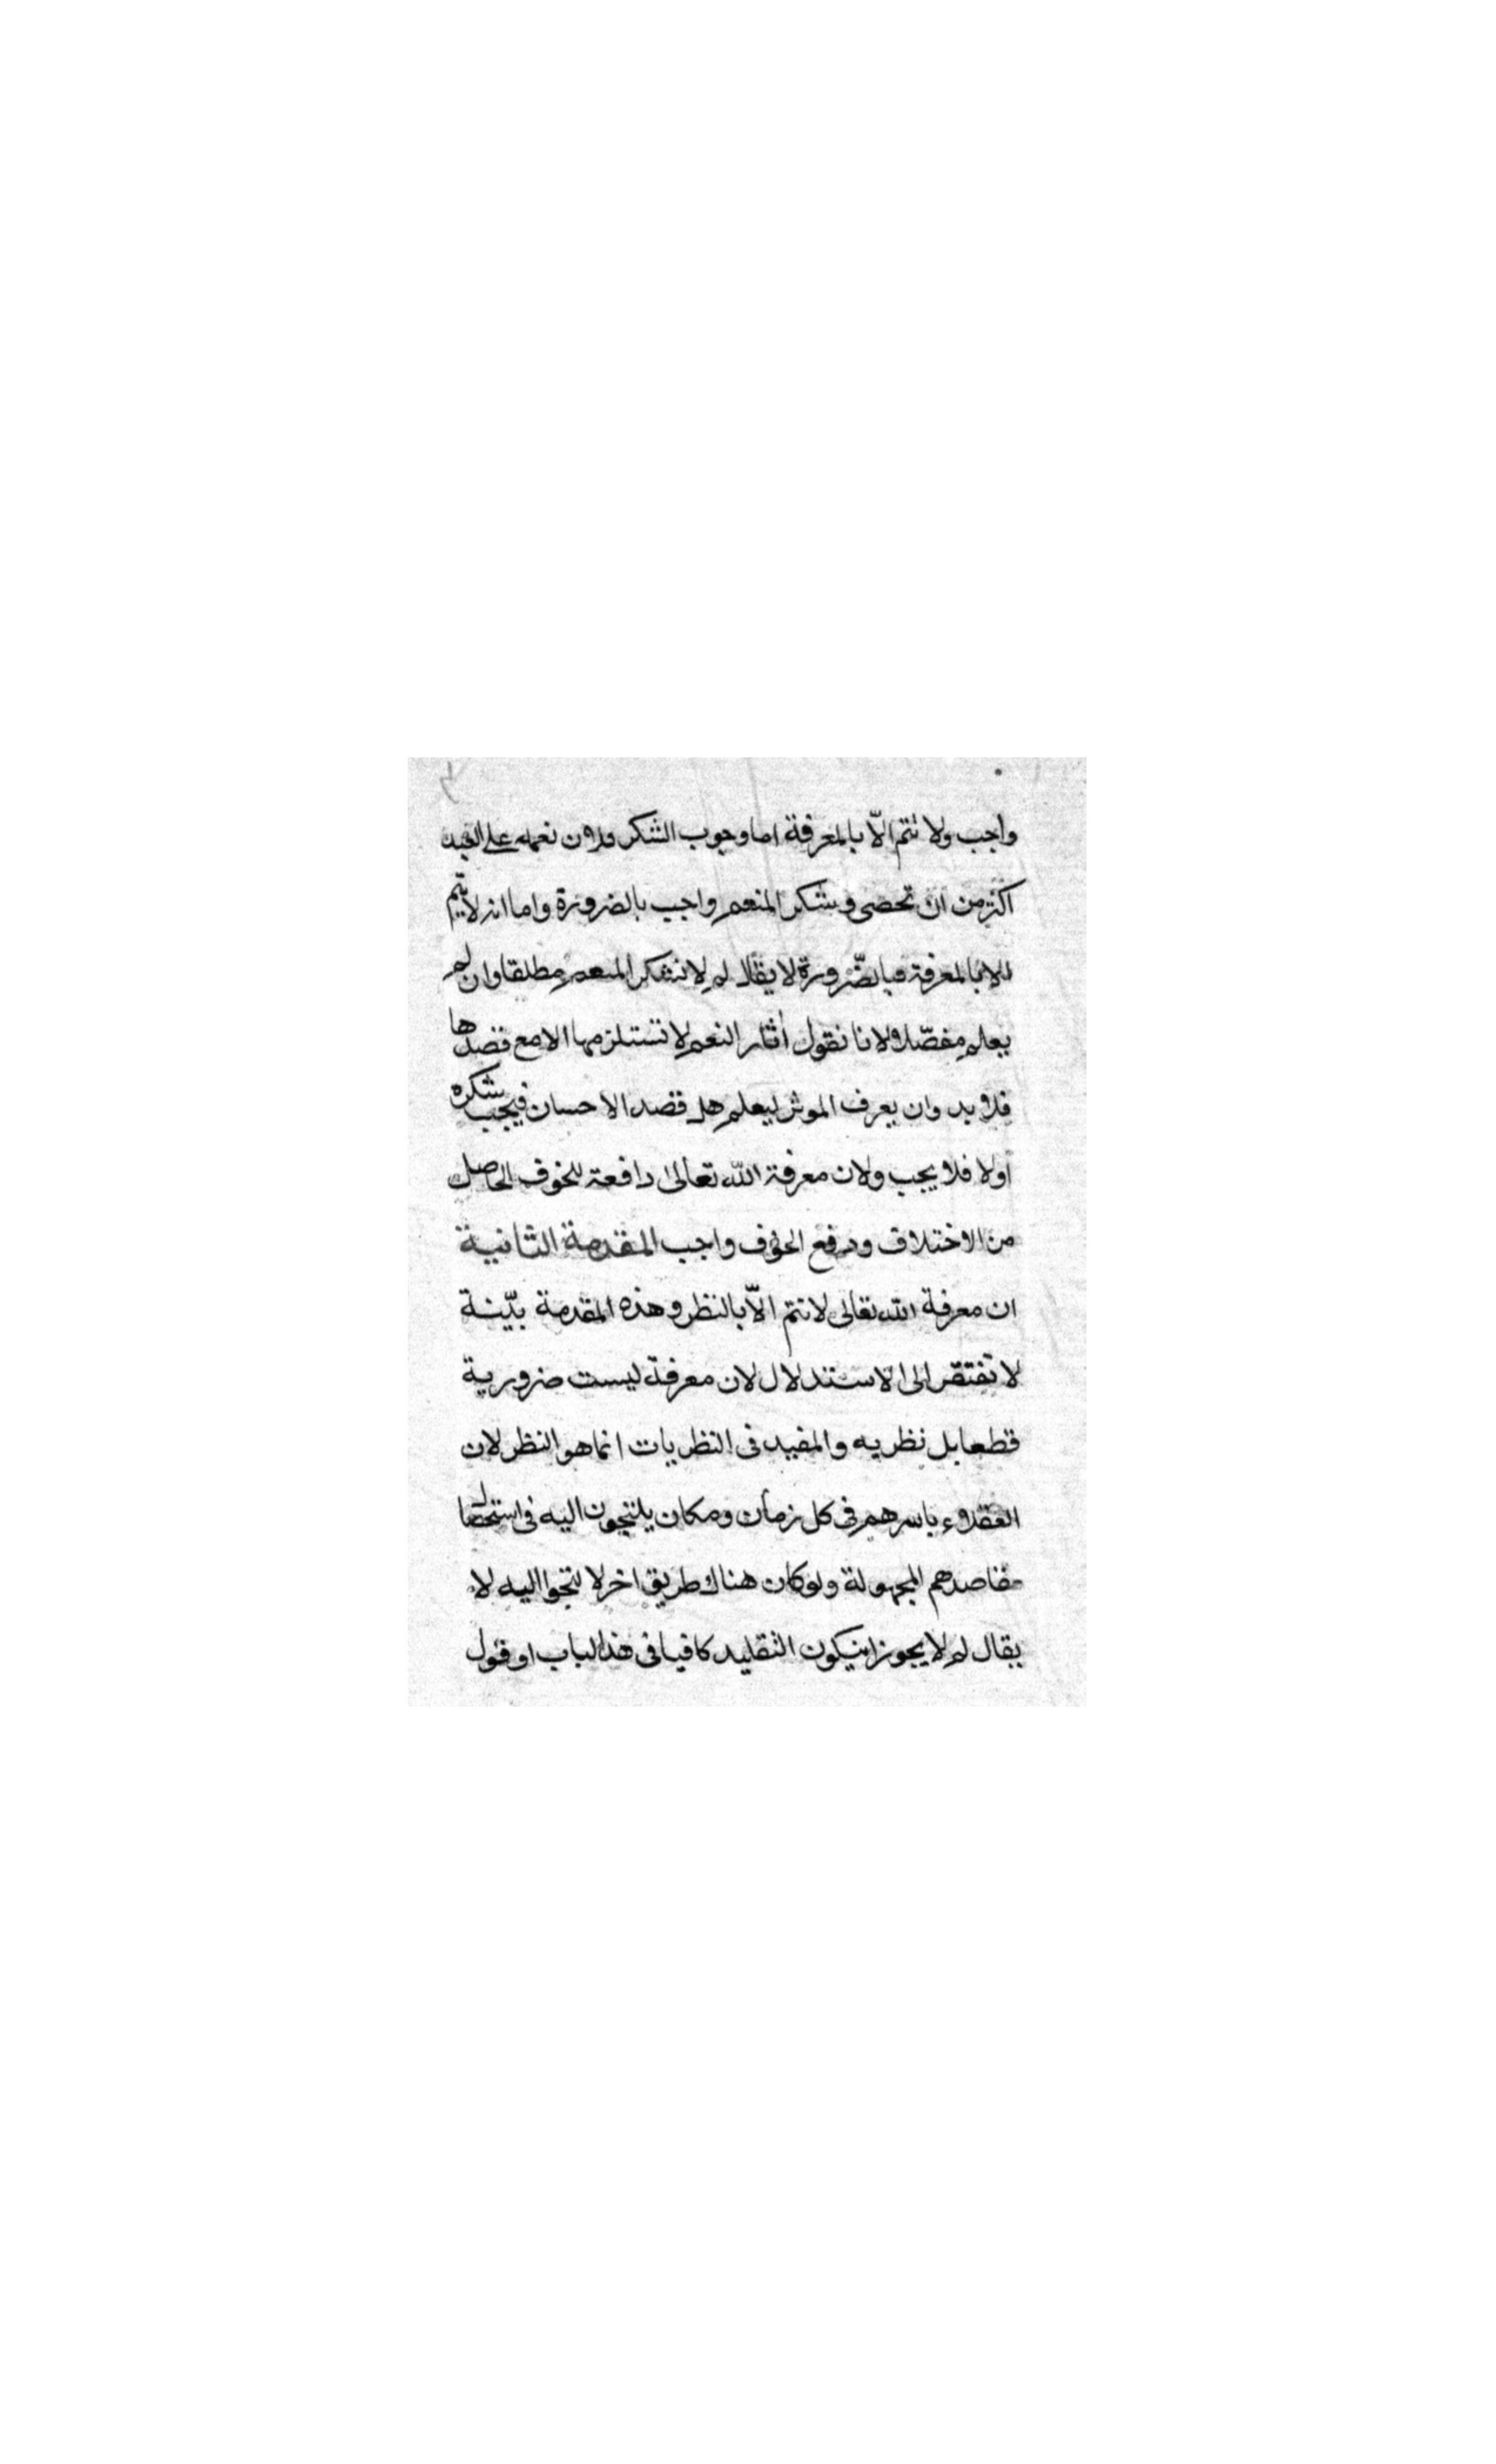 واجب ولا تتم الّا بالمعرفة اما وجوب الشكر فلان نعمه على العبد
اكثر من ان تحصى وشكر المنعم واجب بالضرورة واما انه لا يتم
الا بالمعرفة فبالضّرورة لا يقال لم لا نشكر المنعم مطلقا وان لم
يعلم مفصّلا لانا نقول أثار النعم لا تستلزمها الا مع قصدها
فلا بد وان يعرف الموثر ليعلم هل قصد الاحسان فيجب شكره
أولا فلا يجب ولان معرفة الله تعالى دافعة للخوف الحاصل
من الاختلاف ودفع الخوف واجب المقدمة الثانية
ان معرفة الله تعالى لا تتم الّا بالنظر وهذه المقدمة بيّنة
لا تفتقر الى الاستدلال لان معرفة ليست ضرورية
قطعا بل نظريه والمفيد فى النظريات انما هو النظر لان
العقلاء باسرهم فى كل زمان ومكان يلتجون اليه فى استحصال
مقاصدهم المجهولة ولو كان هناك طريق اخر لا لتجوا اليه لا
يقال لم لا يجوز انيكون التقليد كافيا فى هذا الباب او قول